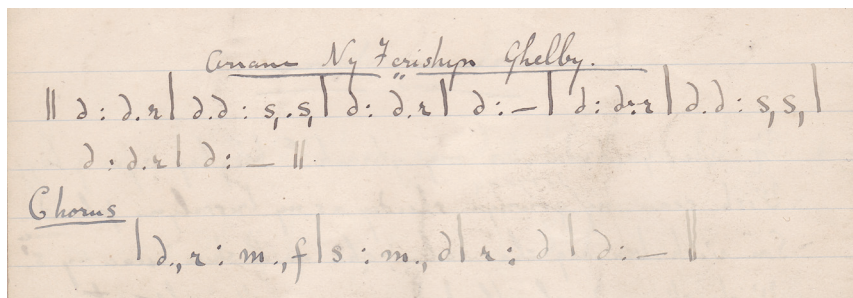 Arrane Ny Ferishyn Ghelby.
‖ d : d.r | d.d : s₁.s₁ | d : d.r | d : — | d : d.r | d.d : s₁ s₁ |
d : d.r | d : — ‖
Chorus
| d.,r : m.,f | s : m.,d | r : d | d : — ‖